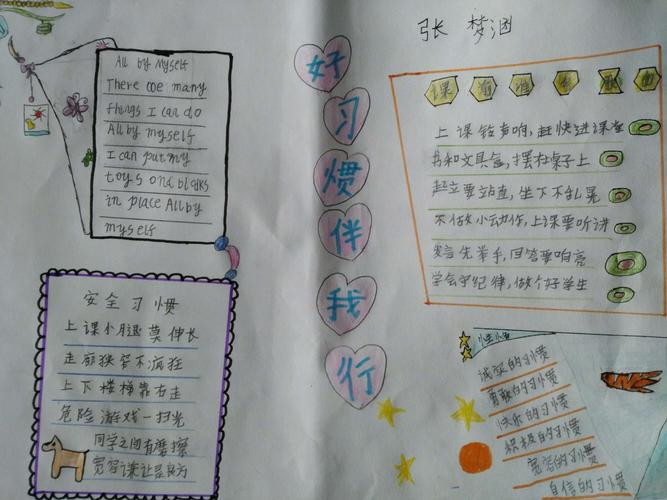 张梦涵
好
习
惯
伴
我
行
All by Myself
There are many
things I can do
All by myself
I can put my
toys and blocks
in place All by
myself
课前准备歌
上课铃声响,赶快进课堂
书和文具盒,摆在桌子上
起立要站直,坐下不乱晃
不做小动作,上课要听讲
发言先举手,回答要响亮
学会守纪律,做个好学生
安全习惯
上课小腿莫伸长
走廊狭窄不疯狂
上下楼梯靠右走
危险游戏一扫光
同学之间有磨擦
宽容谦让是良方
诚实的习惯
勇敢的习惯
快乐的习惯
积极的习惯
宽容的习惯
自信的习惯